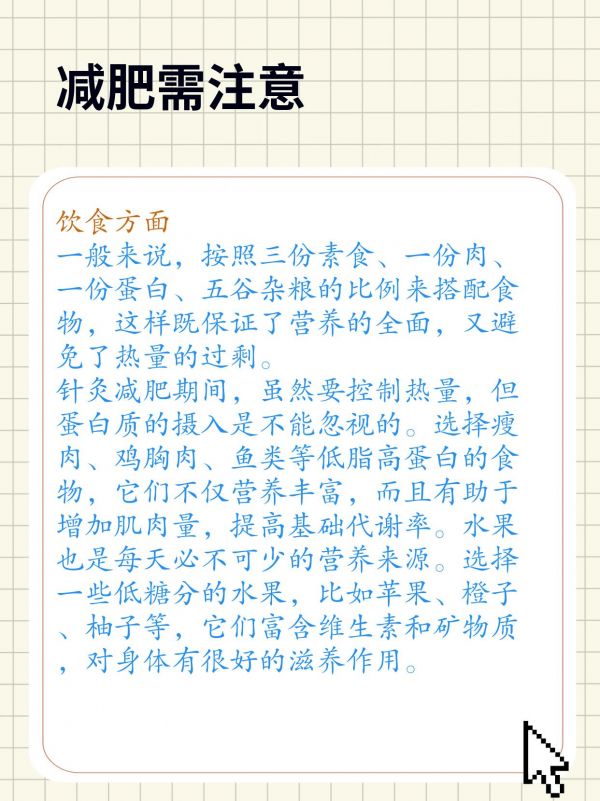 减肥需注意
饮食方面
一般来说，按照三份素食、一份肉、
一份蛋白、五谷杂粮的比例来搭配食
物，这样既保证了营养的全面，又避
免了热量的过剩。
针灸减肥期间，虽然要控制热量，但
蛋白质的摄入是不能忽视的。选择瘦
肉、鸡胸肉、鱼类等低脂高蛋白的食
物，它们不仅营养丰富，而且有助于
增加肌肉量，提高基础代谢率。水果
也是每天必不可少的营养来源。选择
一些低糖分的水果，比如苹果、橙子
、柚子等，它们富含维生素和矿物质
，对身体有很好的滋养作用。